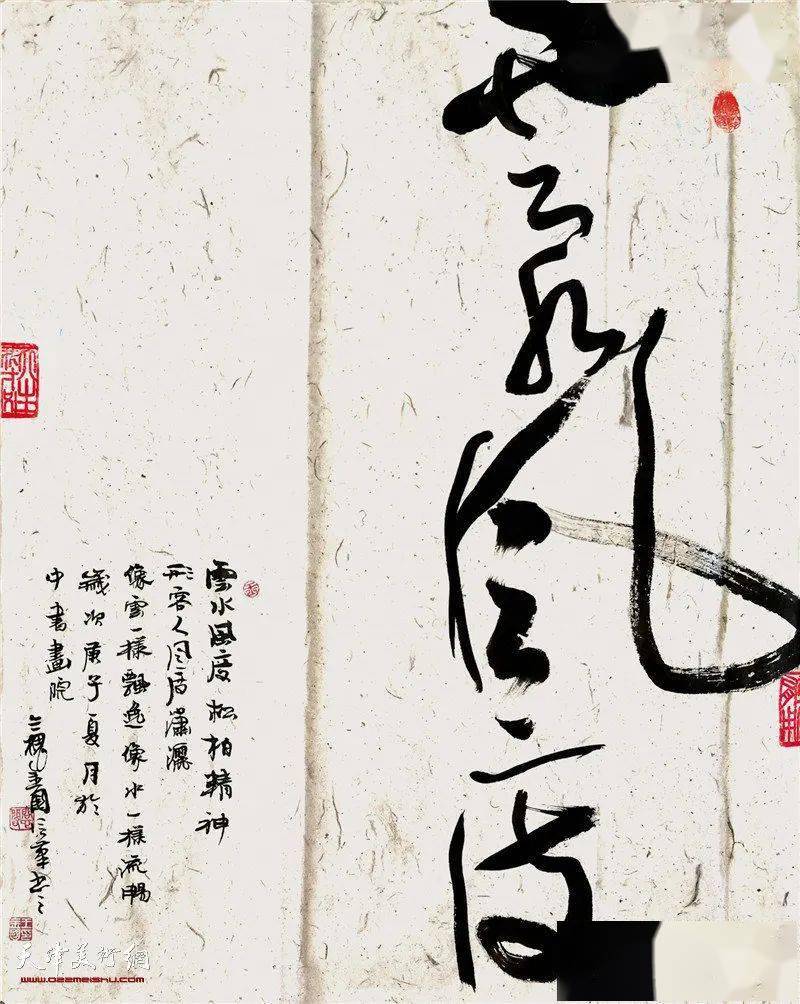 雲水風度
雲水風度 松柏精神
形容人風度瀟灑
像雲一樣飄逸 像水一樣流暢
歲次庚子夏月於
中書畫院
天津美術網
www.022meishu.com